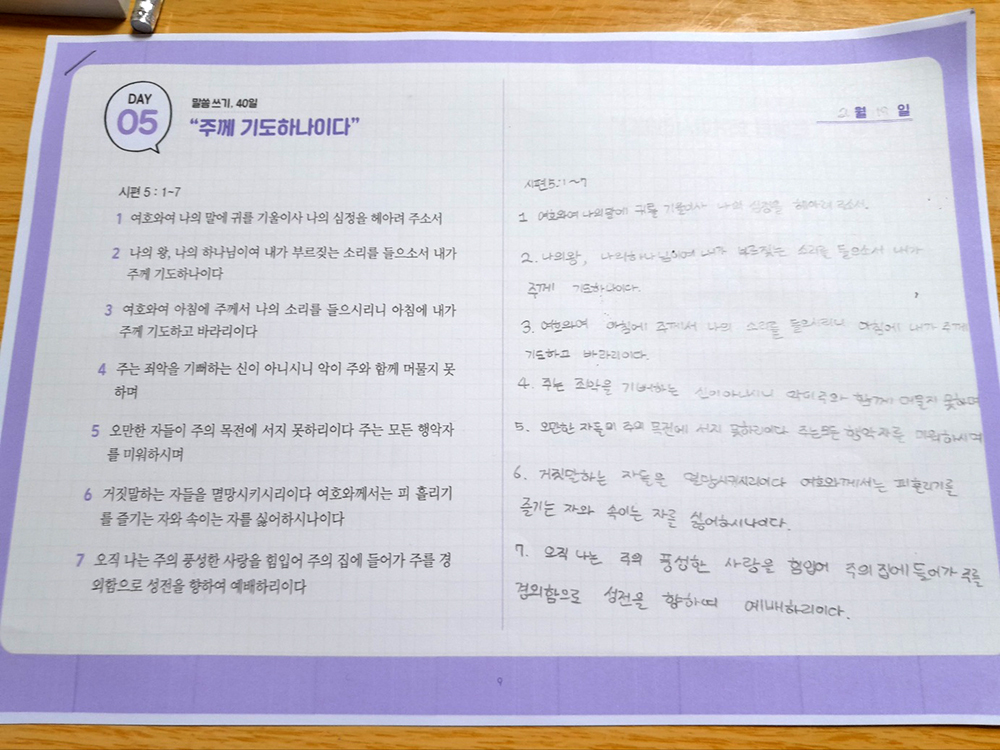 DAY
05
말씀 쓰기. 40일
“주께 기도하나이다”
시편 5 : 1~7
1 여호와여 나의 말에 귀를 기울이사 나의 심정을 헤아려 주소서
2 나의 왕, 나의 하나님이여 내가 부르짖는 소리를 들으소서 내가
주께 기도하나이다
3 여호와여 아침에 주께서 나의 소리를 들으시리니 아침에 내가
주께 기도하고 바라리이다
4 주는 죄악을 기뻐하는 신이 아니시니 악이 주와 함께 머물지 못
하며
5 오만한 자들이 주의 목전에 서지 못하리이다 주는 모든 행악자
를 미워하시며
6 거짓말하는 자들을 멸망시키시리이다 여호와께서는 피 흘리기
를 즐기는 자와 속이는 자를 싫어하시나이다
7 오직 나는 주의 풍성한 사랑을 힘입어 주의 집에 들어가 주를 경
외함으로 성전을 향하여 예배하리이다
2월 19일
시편5:1~7
1 여호와여 나의말에 귀를 기울이사 나의 심정을 헤아려 주소서.
2. 나의왕, 나의하나님이여 내가 부르짖는 소리를 들으소서 내가
주께 기도하나이다.
3. 여호와여 아침에 주께서 나의 소리를 들으시리니 아침에 내가 주께
기도하고 바라리이다.
4. 주는 죄악을 기뻐하는 신이아니시니 악이주와 함께 머물지 못하며
5. 오만한 자들의 주의 목전에 서지 못하리이다 주는모든 행악자를 미워하시며
6. 거짓말하는 자들을 멸망시키시리이다 여호와께서는 피흘리기를
즐기는 자와 속이는 자를 싫어하시나이다.
7. 오직 나는 주의 풍성한 사랑을 힘입어 주의 집에 들어가 주를
경외함으로 성전을 향하며 예배하리이다.
9